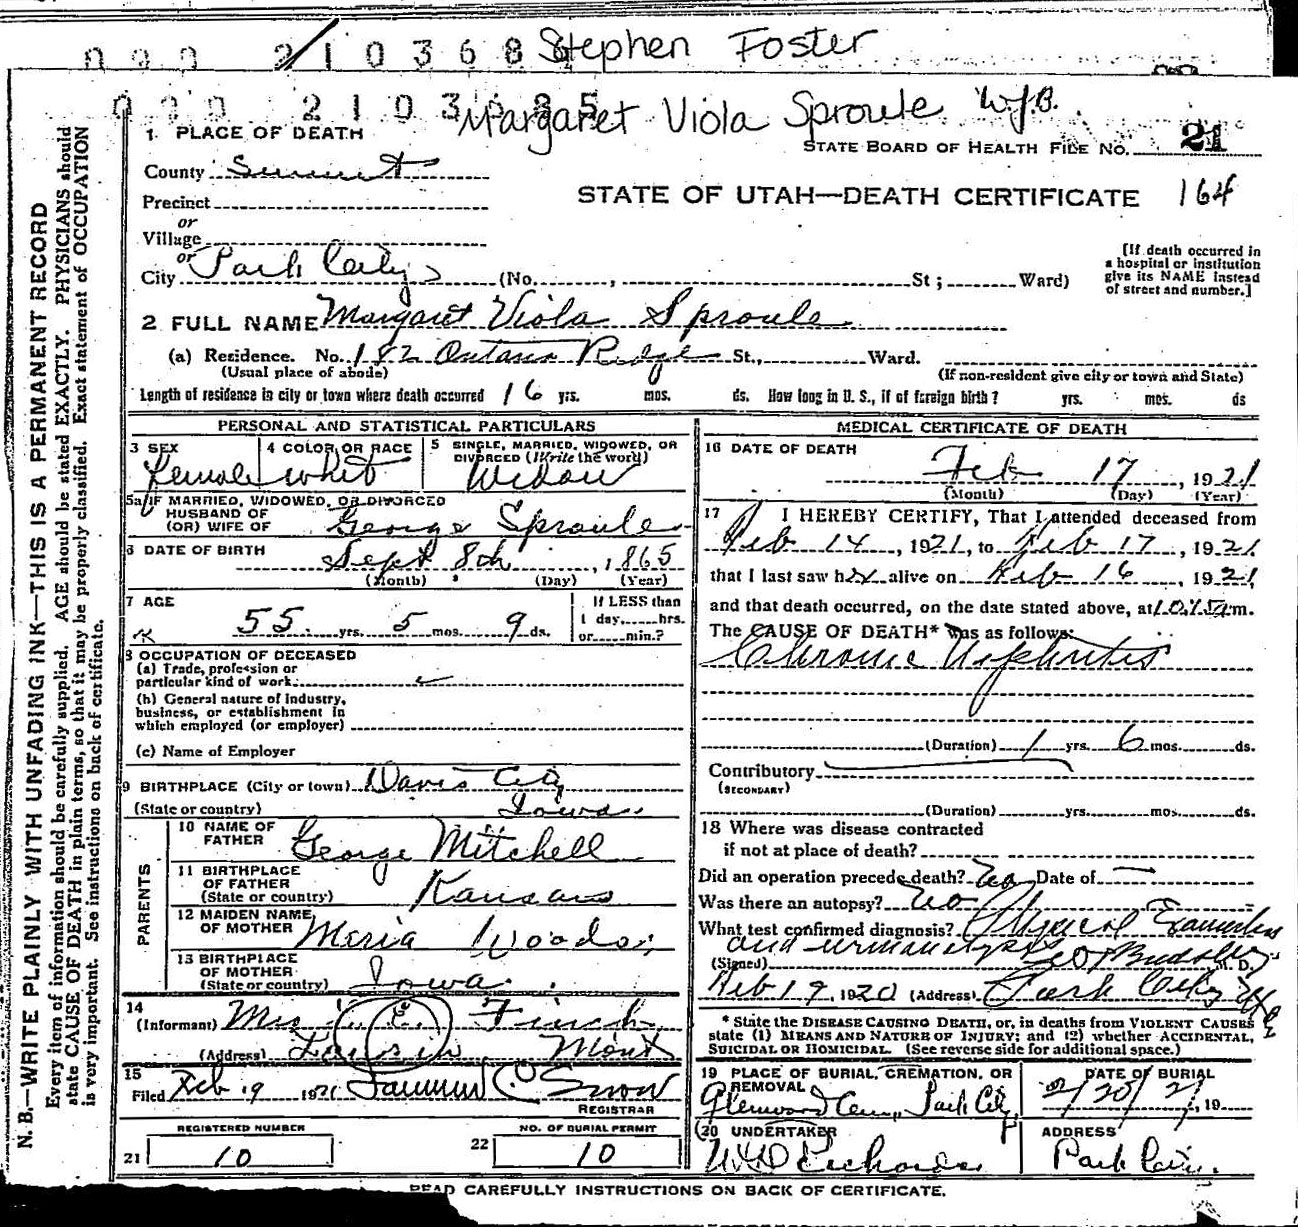 000 2103684 Stephen Foster
000 2103685 Margaret Viola Sproule W.J.B.
STATE BOARD OF HEALTH FILE NO. 21
1 PLACE OF DEATH
County Summit
STATE OF UTAH—DEATH CERTIFICATE 164
Precinct
or
Village
or
City Park City (No. , St ; Ward)
[If death occurred in a hospital or institution give its NAME instead of street and number.]
2 FULL NAME Margaret Viola Sproule
(a) Residence. No. 182 Ontario Ridge St., Ward.
(Usual place of abode) (If non-resident give city or town and State)
Length of residence in city or town where death occurred 16 yrs. mos. ds. How long in U. S., if of foreign birth? yrs. mos. ds
PERSONAL AND STATISTICAL PARTICULARS
3 SEX Female
4 COLOR OR RACE White
5 SINGLE, MARRIED, WIDOWED, OR DIVORCED (Write the word) Widow
5a IF MARRIED, WIDOWED, OR DIVORCED
HUSBAND OF
(OR) WIFE OF George Sproule
6 DATE OF BIRTH Sept 8th, 1865
(Month) (Day) (Year)
7 AGE 55 yrs. 5 mos. 9 ds.
If LESS than 1 day, hrs. or min.?
8 OCCUPATION OF DECEASED
(a) Trade, profession or
particular kind of work
(b) General nature of industry,
business, or establishment in
which employed (or employer)
(c) Name of Employer
9 BIRTHPLACE (City or town) Davis City
(State or country) Iowa
PARENTS
10 NAME OF FATHER George Mitchell
11 BIRTHPLACE OF FATHER (State or country) Kansas
12 MAIDEN NAME OF MOTHER Meria Woods
13 BIRTHPLACE OF MOTHER (State or country) Iowa
14 (Informant) E. Finch
(Address) Mont
15 Filed Feb 19 1921 C. Snow
REGISTRAR
REGISTERED NUMBER
21 10
NO. OF BURIAL PERMIT
22 10
MEDICAL CERTIFICATE OF DEATH
16 DATE OF DEATH
Feb 17, 1921
(Month) (Day) (Year)
17 I HEREBY CERTIFY, That I attended deceased from
Feb 14, 1921, to Feb 17, 1921
that I last saw her alive on Feb 16, 1921
and that death occurred, on the date stated above, at 10.15 a.m.
The CAUSE OF DEATH* was as follows:
Chronic Nephritis
(Duration) 1 yrs. 6 mos. ds.
Contributory
(SECONDARY)
(Duration) yrs. mos. ds.
18 Where was disease contracted
if not at place of death?
Did an operation precede death? No Date of —
Was there an autopsy? No
What test confirmed diagnosis? Physical Examination
and urinanalysis
(Signed) M. D.
Feb 19, 1920 (Address) Park City
* State the DISEASE CAUSING DEATH, or, in deaths from VIOLENT CAUSES
state (1) MEANS AND NATURE OF INJURY; and (2) whether ACCIDENTAL,
SUICIDAL OR HOMICIDAL. (See reverse side for additional space.)
19 PLACE OF BURIAL, CREMATION, OR REMOVAL
Glenwood Cem, Park City
DATE OF BURIAL
2/20/21, 19
20 UNDERTAKER
ADDRESS
Park City
READ CAREFULLY INSTRUCTIONS ON BACK OF CERTIFICATE.
N. B.—WRITE PLAINLY WITH UNFADING INK—THIS IS A PERMANENT RECORD
Every item of information should be carefully supplied. AGE should be stated EXACTLY. PHYSICIANS should
state CAUSE OF DEATH in plain terms, so that it may be properly classified. Exact statement of OCCUPATION
is very important. See instructions on back of certificate.